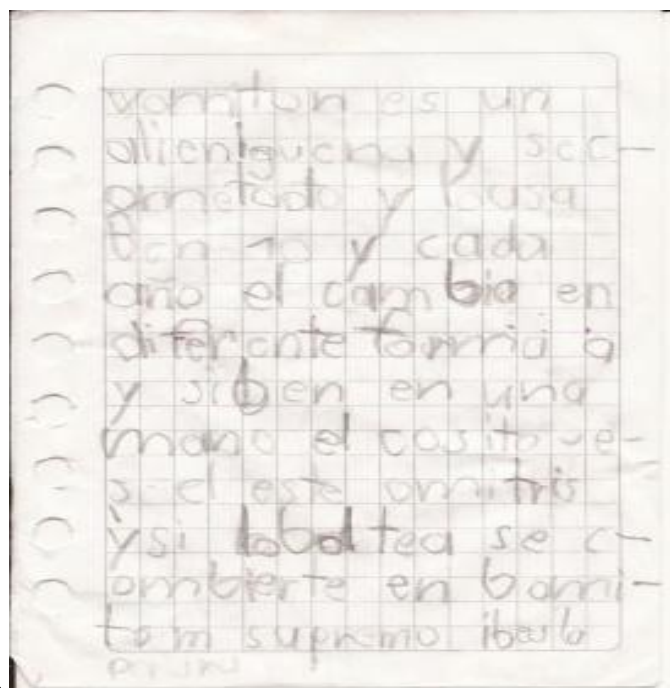 vomiton es un
alienigena y se c
ometodo y basa
y cada
año el cambia en
diferente forma
y si ben en una
mano el cosito ve
s el este omnitris
ysi loboltea se c
ombierte en bomi
tom supremo ibaila